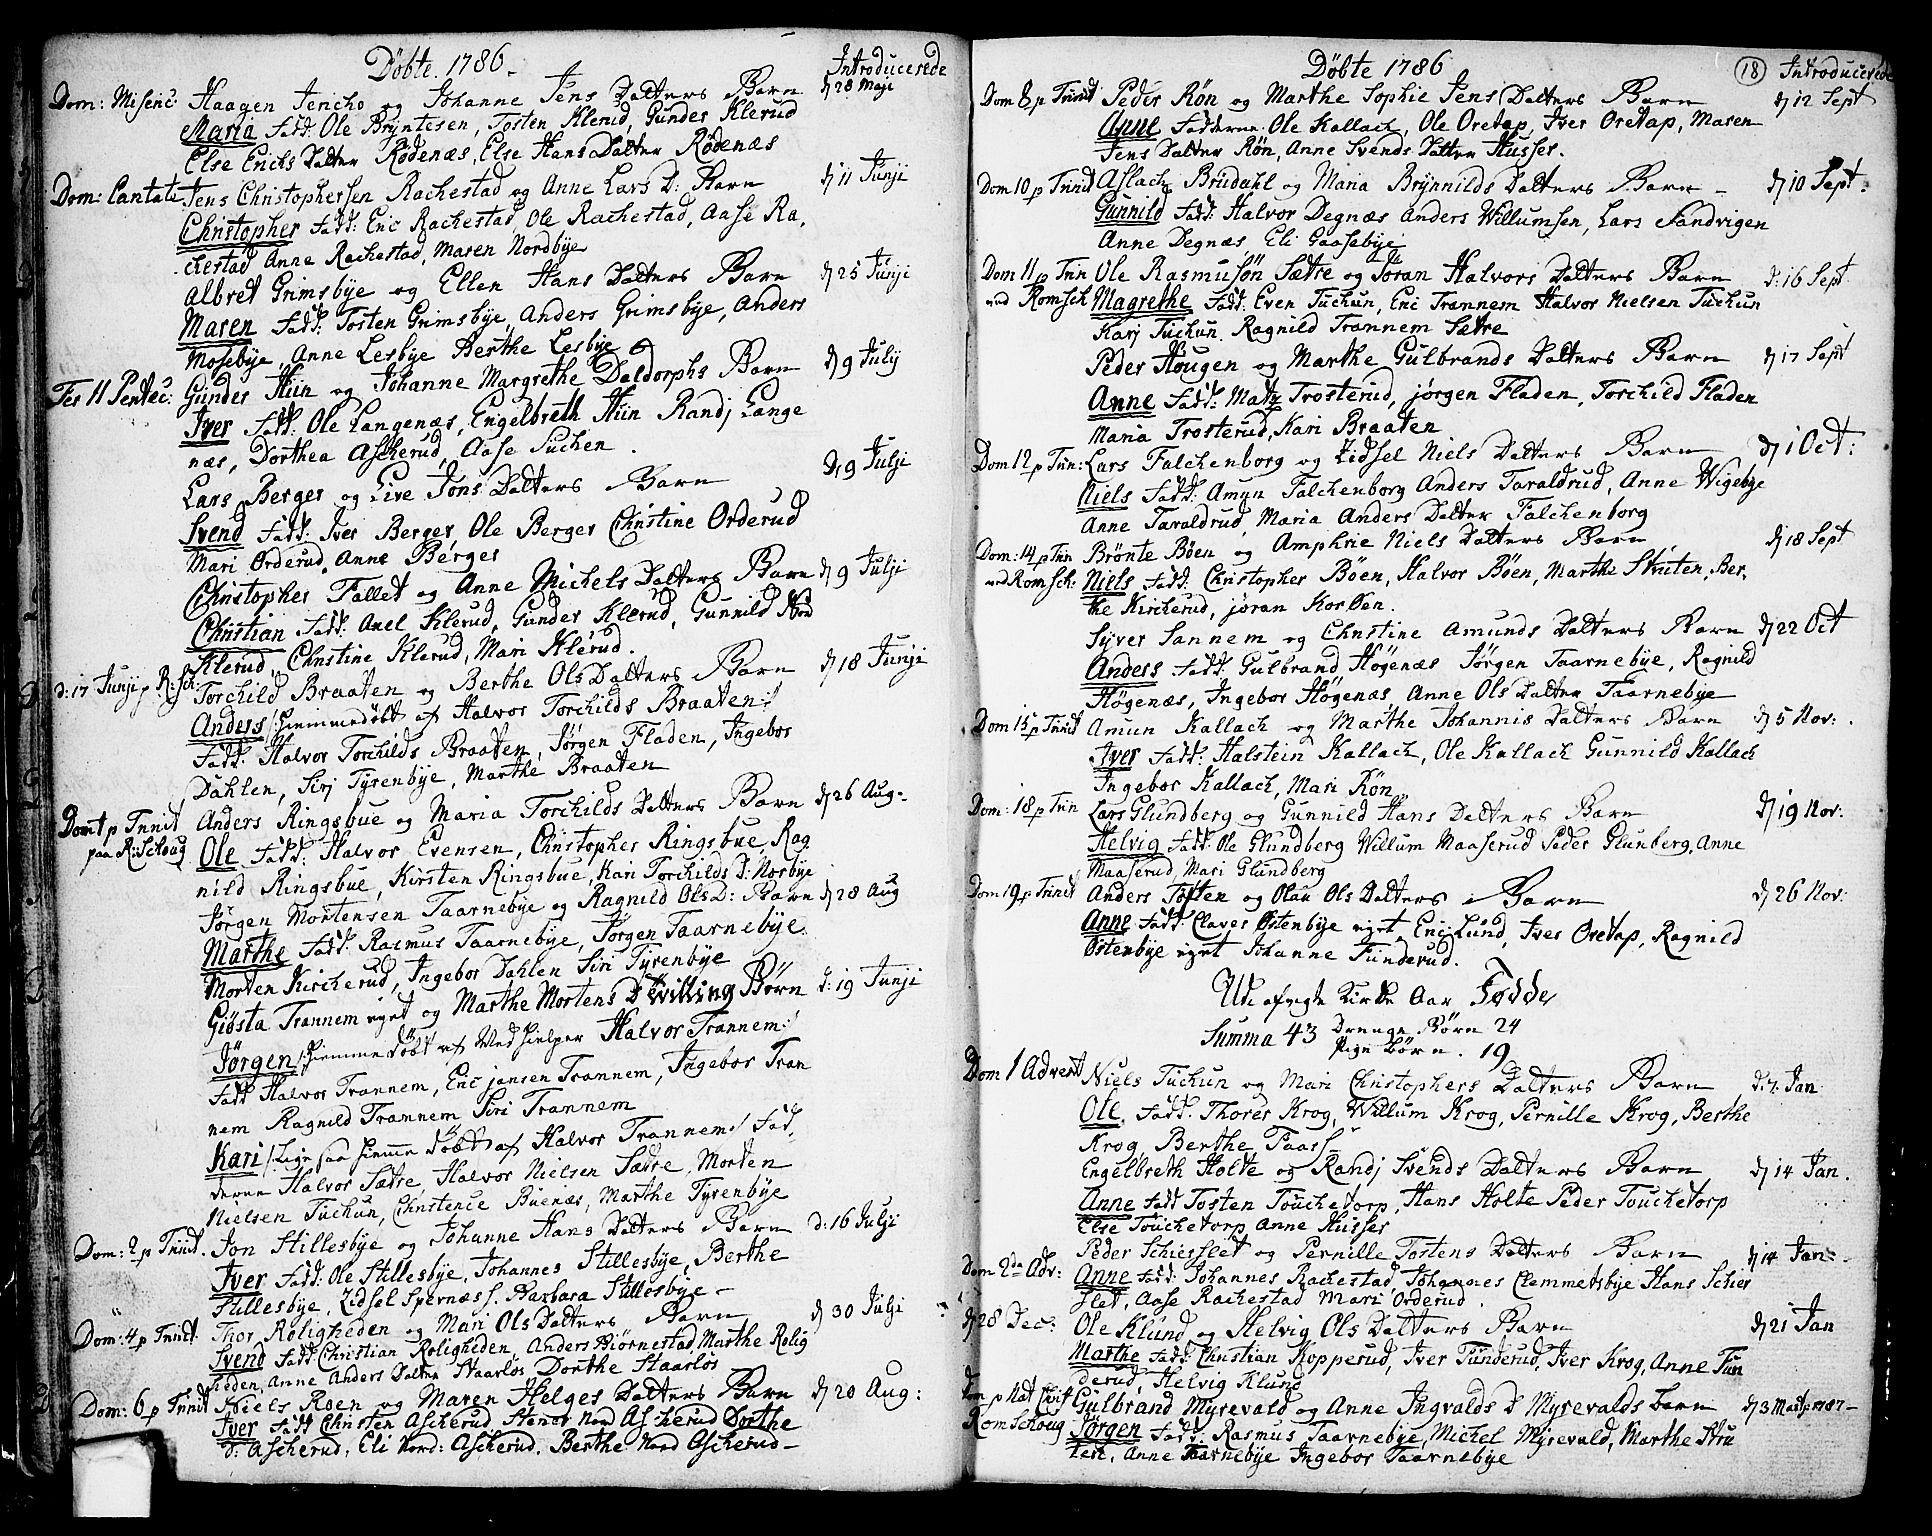 Döbte. 1786. Introducerede
Dom: Miseric: Haagen Jericho og Johanne Jens Datters Barn d 28 Maji
Maria Fadd: Ole Bryntesen, Tosten Klerud, Gunder Klerud
Else Erichs Datter Rödenæs, Else Hans Datter Rödenæs
Dom: Cantate Jens Christophersen Rachestad og Anne Lars D: Barn d 11 Junji
Christopher Fadd: Eric Rachestad, Ole Rachestad, Aase Ra,
chestad Anne Rachestad, Maren Nordbye
Albret Grimsbye og Ellen Hans Datters Barn d 25 Junji
Maren Fadd: Tosten Grimsbye, Anders Grimsbye, Anders
Mosebye, Anne Lesbye Berthe Lesbye
Fer 11 Pentec: Gunder Hiin og Johanne Margrethe Daldorphs Barn d 9 July
Iver Fadd: Ole Langenæs, Engelbreth Hiin Randj Lange
næs, Dorthea Ascherud, Aase Tuchen.
Lars Berger og Live Jons Datters Barn d 9 Julji
Svend Fadd: Iver Berger, Ole Berger Christine Orderud
Mari Orderud, Anne Berger
Christopher Fallet og Anne Michels Datters Barn d 9 Julji
Christian Fadd: Axel Klerud, Gunder Klerud, Gunnild Nord
Klerud, Christine Klerud, Mari Klerud.
d: 17 Junji p R: Sch: Torchild Braaten og Berthe Ols Datters Barn d 18 Junji
Anders /:hiemmedöbt af Halvor Torchilds Braaten:/
Fadd: Halvor Torchilds Braaten, Jörgen Fladen, Ingebor
Dahlen, Sirj Tyrenbye, Marthe Braaten
Dom 1 p Trinit Anders Ringsbue og Maria Torchilds Datters Barn d 26 Aug.
paa R: Schoug Ole Fadd: Halvor Evensen, Christopher Ringsbue, Rag
nild Ringsbue, Kirsten Ringsbue, Kari Torchilds D: Norbye
Jörgen Mortensen Taarnebye og Ragnild Ols D: Barn d 28 Aug
Marthe Fadd: Rasmus Taarnebye, Jörgen Taarnebye.
Morten Kircherud, Ingebor Dahlen Siri Tyrenbye
Giösta Trannem eyet og Marthe Mortens D Tvilling Börn d: 19 Junji
Jörgen /:hiemmedöbt af Medhielper Halvor Trannem:/
Fadd Halvor Trannem, Eric jansen Trannem, Ingebor Tran
nem Ragnild Trannem Siri Trannem
Kari /:Lige saa hiemme döbt af Halvor Trannem:/ Fad,
derne Halvor Sætre, Halvor Nielsen Sætre, Morten
Nielsen Tuchun, Christence Buenæs, Marthe Tyrenbye
Dom: 2 p Trinit. Jon Stillesbye og Johanne Hans Datters Barn d: 16 Julji
Iver Fadd: Ole Stillesbye, Johannes Stillesbye, Berthe
Stillesbye, Zidsel Spernæss. Barbara Stillesbye
Dom: 4 p Trinit. Thor Roligheden og Mari Ols Datters Barn d 30 Julji
Svend Fadd Christian Roligheden, Anders Biörnestad, Marthe Rolig
heden, Anne Anders Datter Haarlös Dorthe Haarlös
Dom: 6 p Trinit Niels Roen og Maren Helges Datters Barn d 20 Aug:
Iver Fadd Christen Ascherud Stener Nord Ascherud Dorthe
d: Ascherud, Eli Nord: Ascherud. Berthe Nord Ascherud
Döbte 1786 18 Introducerede
Dom 8 p Trinit Peder Rön og Marthe Sophie Jens Datters Barn d 12 Sept
Anne Fadderne: Ole Kallach, Ole Oretap, Iver Oretap, Maren
Jens Datter Rön, Anne Svends Datter Husser.
Dom 10 p Trinit Aslach Brudahl og Maria Brynnilds Datters Barn d 10 Sept.
Gunnild Fadd: Halvor Degnæs Anders Willumsen, Lars Sandvigen
Anne Degnæs, Eli Gaasebye
Dom 11 p Trin Ole Rasmusön Sætre og Jöran Halvors Datters Barn d: 16 Sept
ved Romsch Magrethe Fadd: Even Tuchun, Eric Trannem Halvor Nielsen Tuchun
Karj Tuchun. Ragnild Trannem Sætre
Peder Hougen og Marthe Gulbrands Datters Barn d 17 Sept
Anne Fadd: Matz Trosterud, jörgen Fladen, Torchild Fladen
Maria Trosterud, Kari Braaten
Dom 12 p Trin: Lars Falchenborg og Zidsel Niels Datters Barn d 1 Oct:
Niels Fadd: Amun Falchenborg Anders Taraldrud, Anne Wigebye
Anne Taraldrud, Maria Anders Datter Falchenborg
Dom: 14 p Trin Brönte Böen og Amphrie Niels Datters Barn d 18 Sept
ved Romsch: Niels Fadd: Christopher Böen, Halvor Böen, Marthe Struten, Ber,
the Kircherud, jöran Korsen.
Syver Sannem og Christine Amunds Datters Barn d 22 Oct
Anders Fadd: Gulbrand Högenæs Jörgen Taarnebye, Ragnild
Högenæs, Ingebor Högenæs, Anne Ols Datter Taarnebye
Dom 15 p Trinit Amun Kallach og Marthe Johannis Datters Barn d 5 Nov:
Iver Fadd: Halstein Kallach, Ole Kallach Gunnild Kallach
Ingebor Kallach, Mari Rön
Dom: 18 p Trin Lars Glundberg og Gunnild Hans Datters Barn d 19 Nov:
Helvig Fadd: Ole Glundberg Willum Maaserud Peder Glunberg, Anne
Maaserud, Mari Glundberg
Dom 19 p Trinit Anders Toften og Olau Ols Datters Barn d 26 Nov:
Anne Fadd: Claves Östenbye eyet, Eric Lund, Iver Oretap, Ragnild
Östenbye eyet Johanne Funderud.
Udi afvigte Kirke Aar Födde
Summa 43 Drenge Börn 24
Pige Börn. 19
Dom 1 Advent Niels Tuchun og Mari Christophers Datters Barn d: 7 Jan
Ole. Fadd: Thorer Krog, Willum Krog, Pernille Krog, Berthe
Krog, Berthe Faass
Engelbreth Holte og Randj Svends Datters Barn d 14 Jan.
Anne Fadd Tosten Touchetorp, Hans Holte Peder Touchetorp
Else Touchetorp Anne Husser
Peder Schierslet og Pernille Tostens Datters Barn d 14 Jan
Dom 2da Adv: Anne Fadd: Johannes Rachestad, Johannes Clemmetsbye Hans Schier
slet, Aase Rachestad Mari Orderud.
d 28 Dec: Ole Klund og Helvig Ols Datters Barn d 21 Jan
Marthe Fadd: Christian Kopperud, Iver Funderud, Iver Krog, Anne Fun
derud, Helvig Klund
Dom p Nat Christ Gulbrand Myrevald og Anne Ingvalds D Myrevalds Barn d 3 Martj 1787
Rom Schoug Jörgen Fadd: Rasmus Taarnebye, Michel Myrevald, Marthe Stru
ten, Anne Taarnebye Ingebor Taarnebye